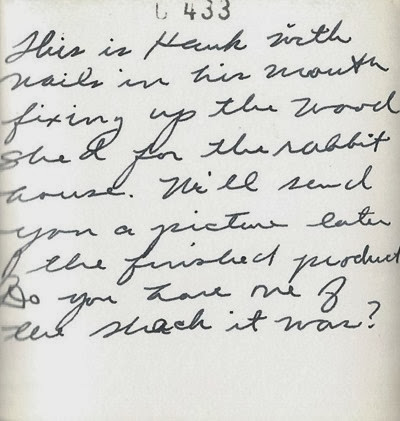 L 433
This is Hank with
nails in his mouth
fixing up the wood
shed for the rabbit
house. We'll send
you a picture later
of the finished product
Do you have one of
the shack it was?